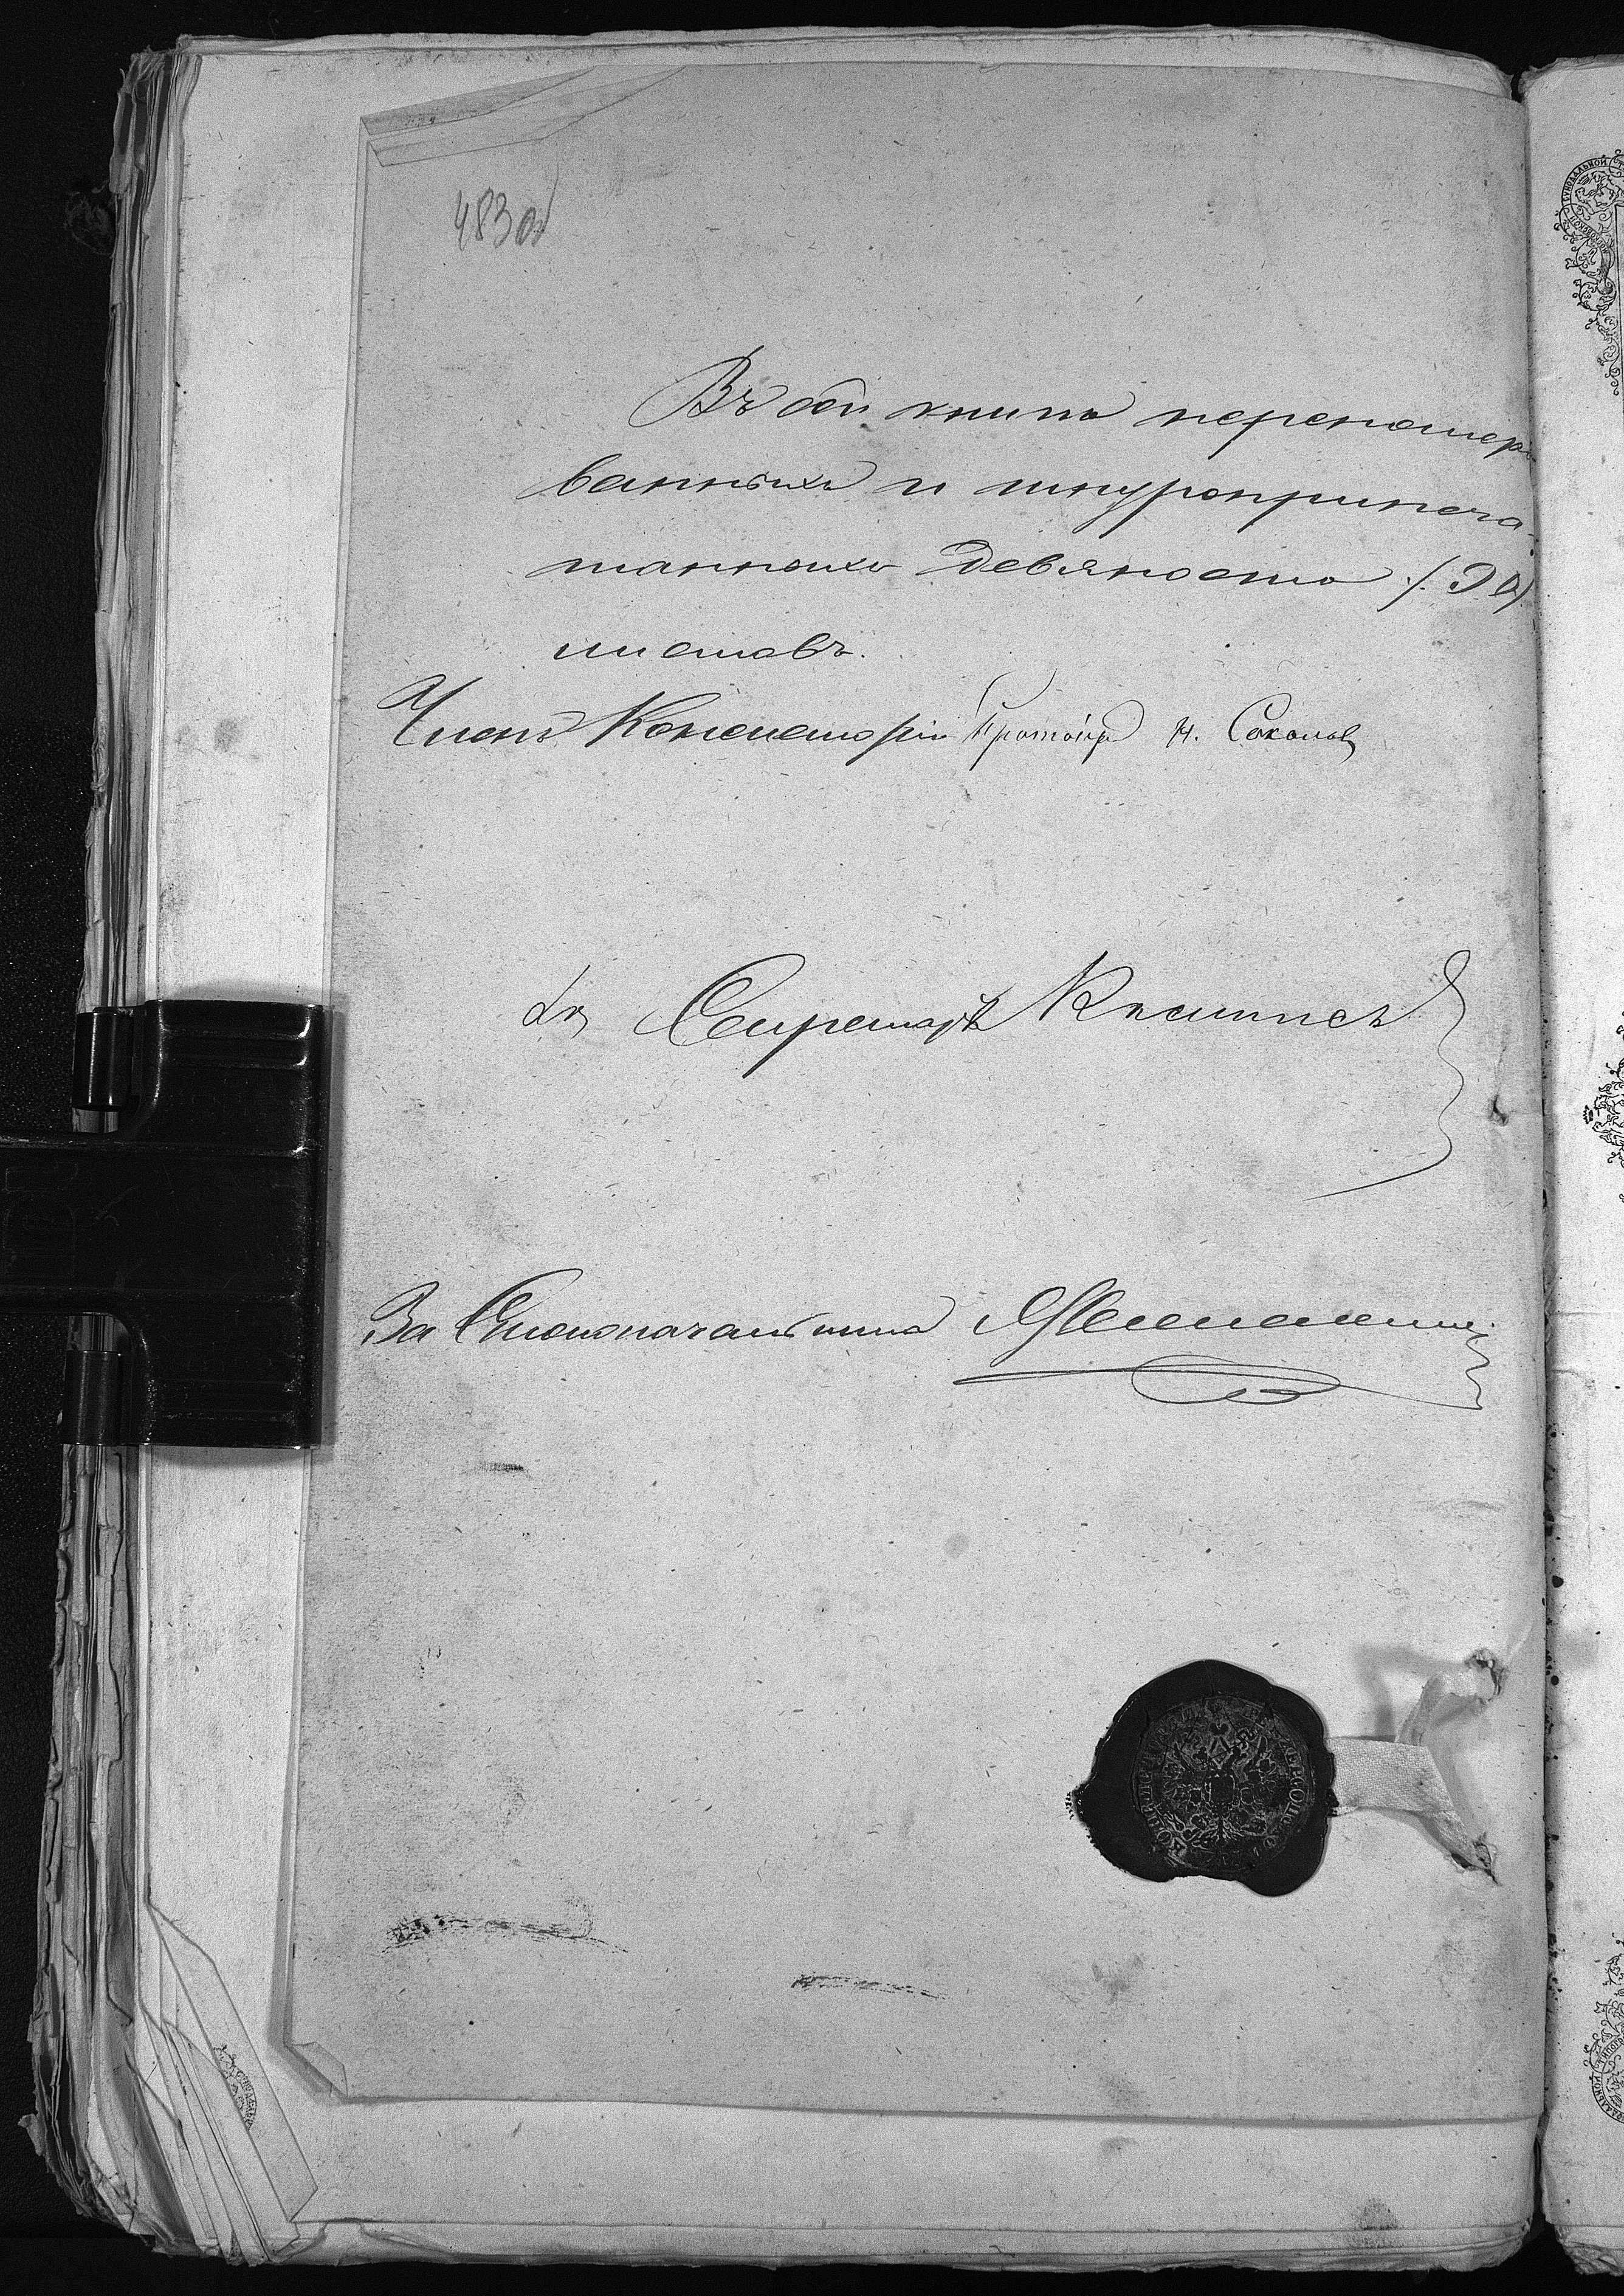 483 об
Въ сей книгѣ перенумеро-
ванныхъ и шнуроприпеча-
танныхъ девяносто /. 90 /.
листовъ.
Членъ Консисторіи Протоіер Н. Соколовъ
Секретарь
За Столоначальника